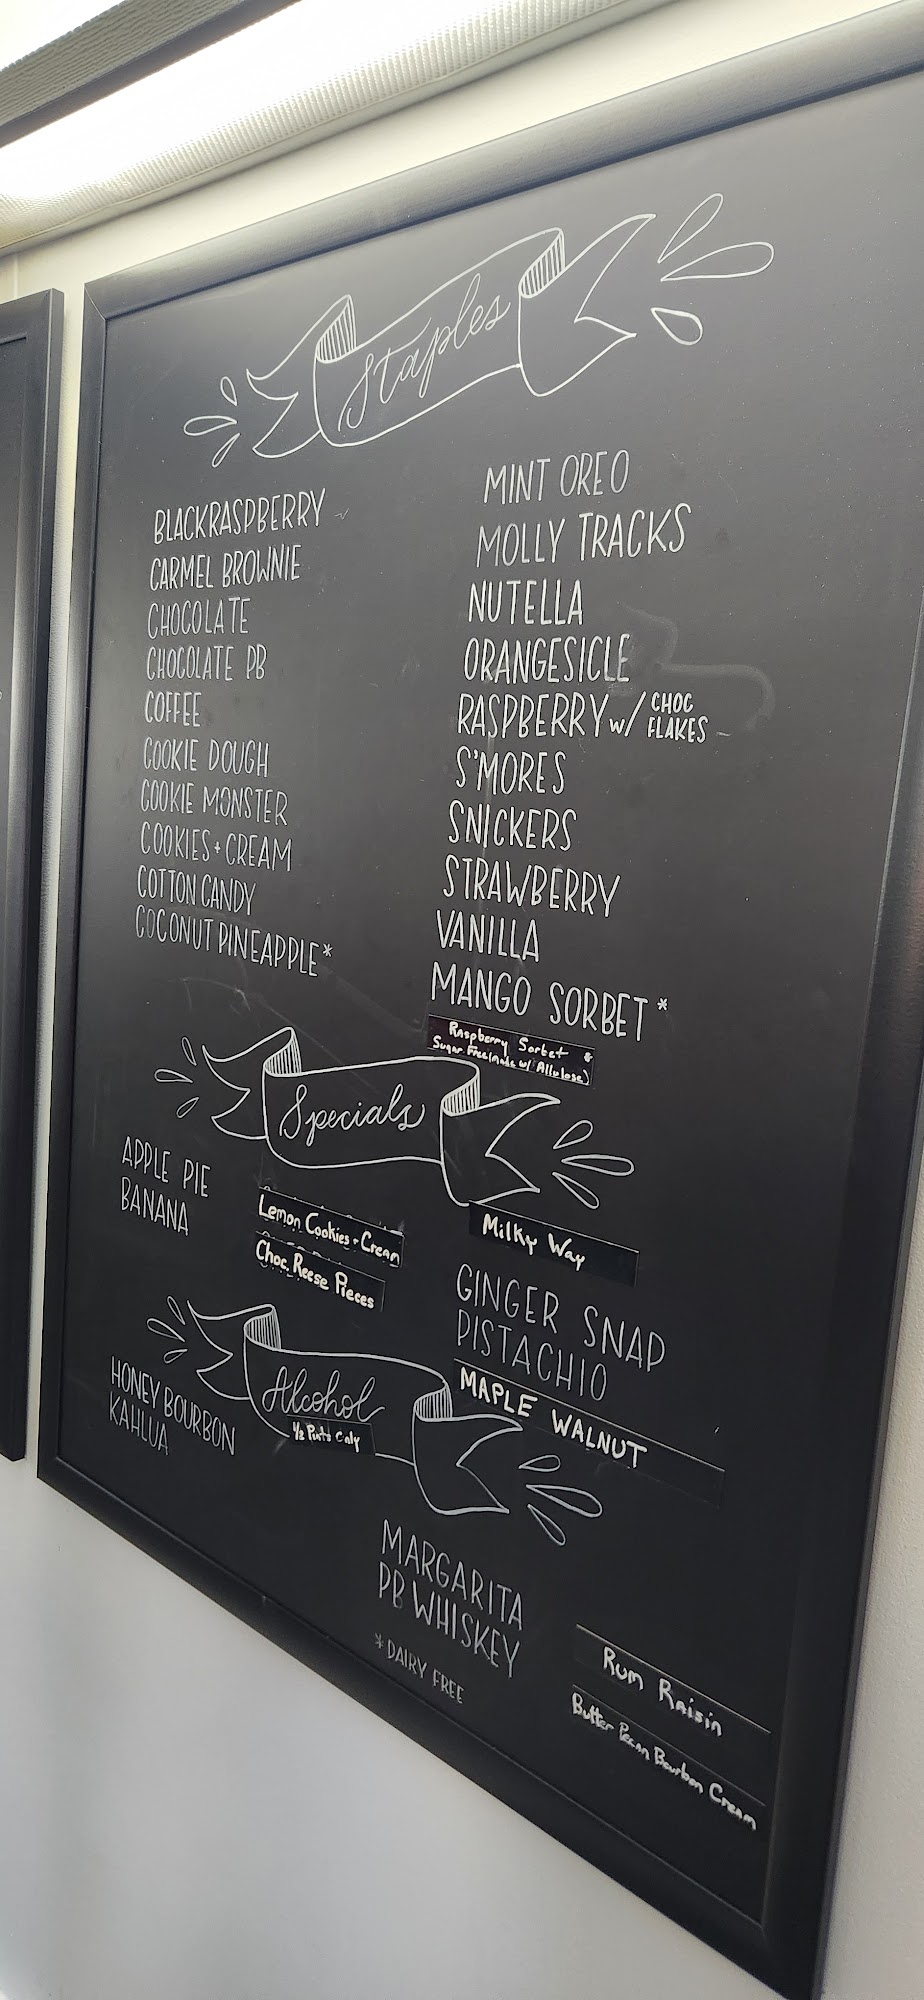 Staples
BLACKRASPBERRY
CARMEL BROWNIE
CHOCOLATE
CHOCOLATE PB
COFFEE
COOKIE DOUGH
COOKIE MONSTER
COOKIES + CREAM
COTTON CANDY
COCONUT PINEAPPLE*
MINT OREO
MOLLY TRACKS
NUTELLA
ORANGESICLE
RASPBERRY w/ CHOC
FLAKES
S'MORES
SNICKERS
STRAWBERRY
VANILLA
MANGO SORBET*
Raspberry Sorbet &
Sugar Free (made w/ Allulose)
Specials
APPLE PIE
BANANA
Lemon Cookies + Cream
Choc. Reese Pieces
Milky Way
GINGER SNAP
PISTACHIO
MAPLE WALNUT
Alcohol
1/2 Pints Only
HONEY BOURBON
KAHLUA
MARGARITA
PB WHISKEY
Rum Raisin
Butter Pecan Bourbon Cream
*DAIRY FREE